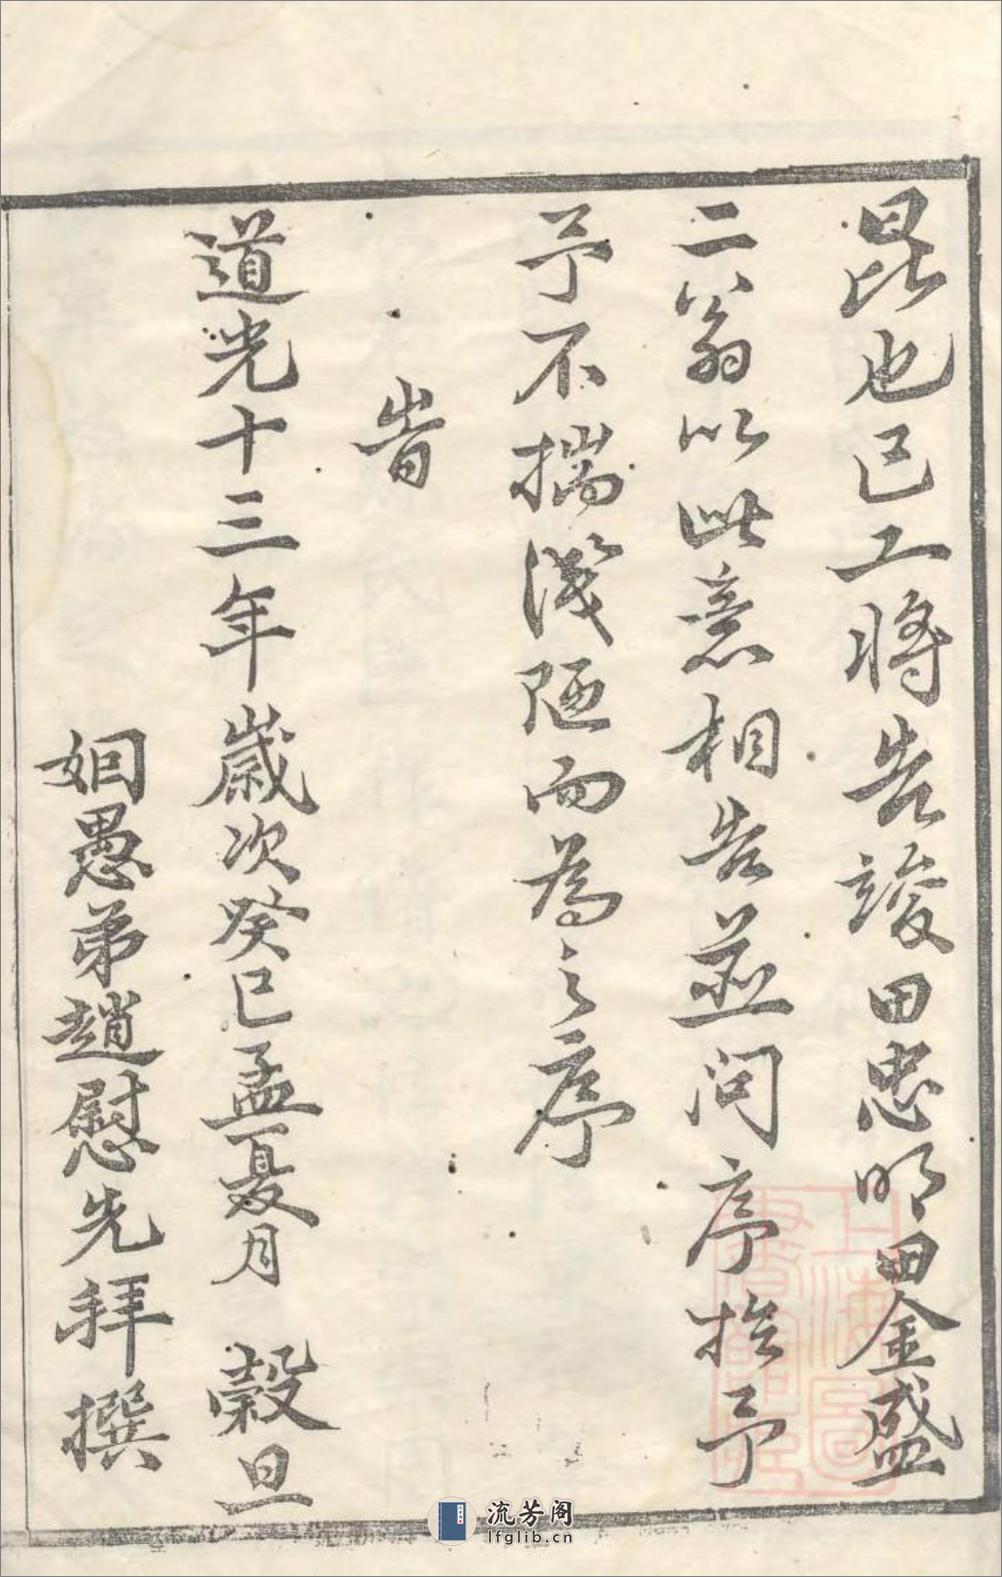 昆也已工將告竣田忠明田金盛
二翁以此意相告並问序於予
予不揣淺陋而為之序
旹
道光十三年歲次癸巳孟夏月 榖旦
姻愚弟趙慰先拜撰
流芳阁
lfglib.cn